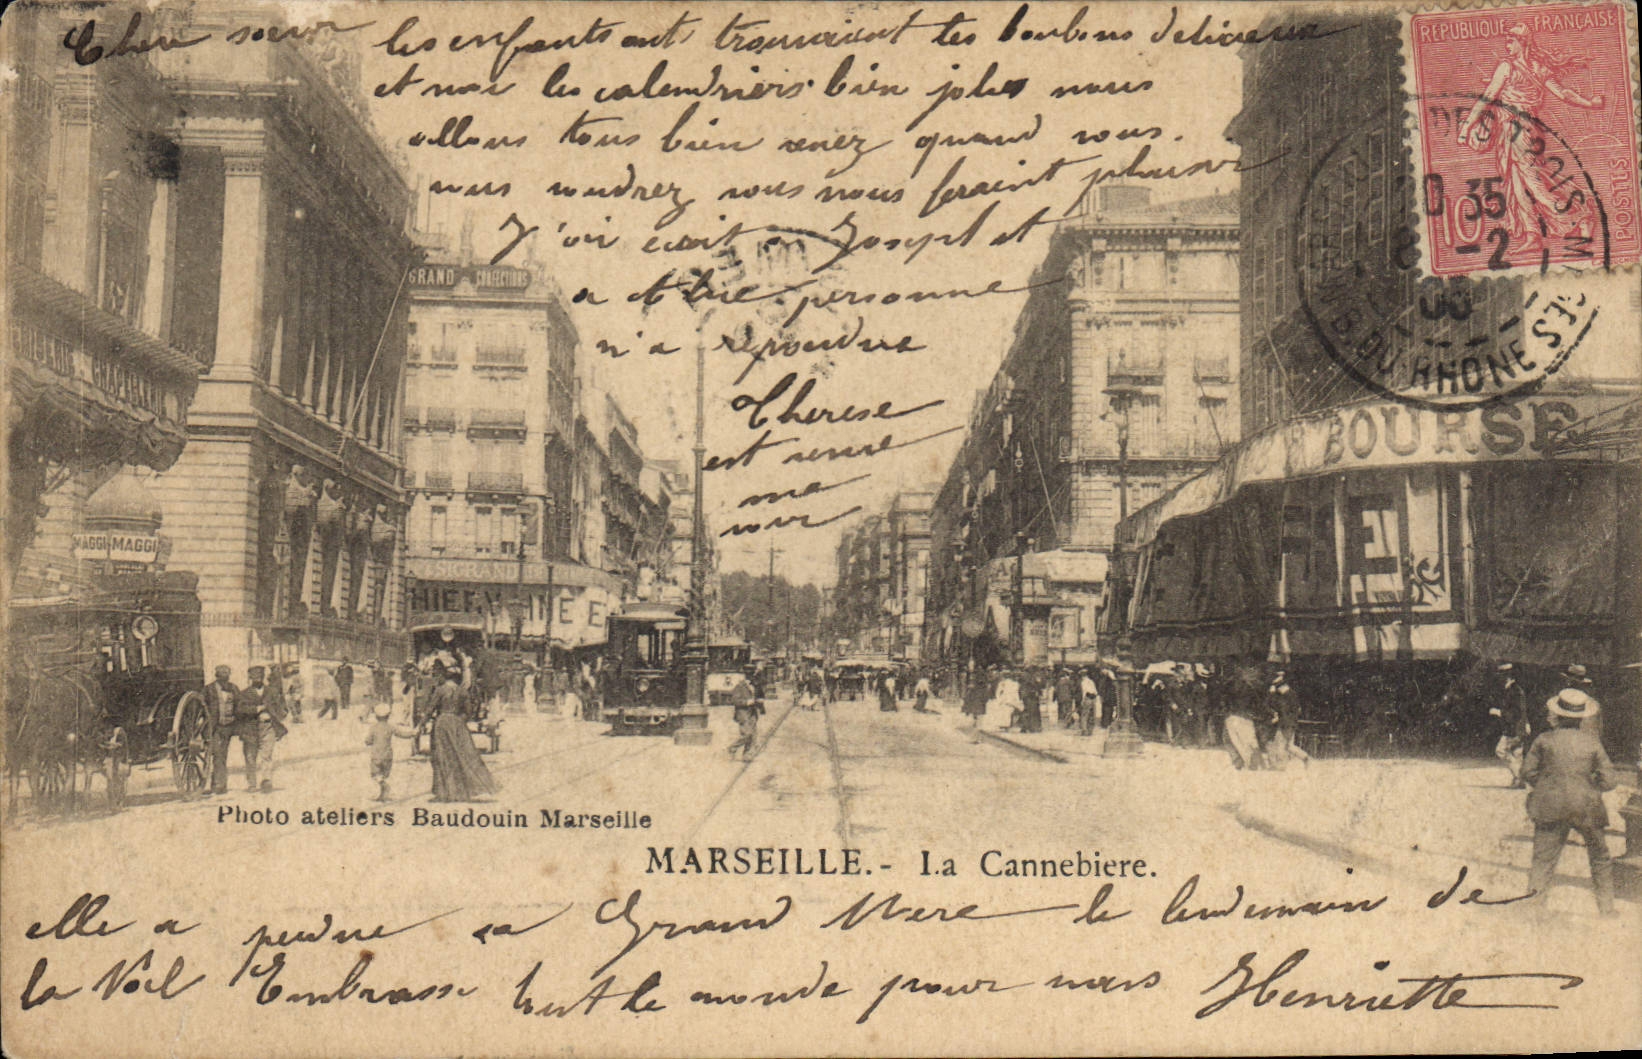 Chere soeur les enfants ont trouvaient tes bonbons delicieux
et moi les calendriers bien jolies nous
allons tous bien venez quand vous
nous voudrez vous nous feraient plaisir
J'ai ecrit a Joseph et
a et personne
n'a repondue
Therese
est venue
me
voir
elle a perdue sa Grand Mere le lendemain de
la Noel Embrasse tout le monde pour nous Henriette
REPUBLIQUE FRANÇAISE
POSTES
10
DES TROIS MAGES
35
-2
B. DU RHONE
GRAND CONFECTIONS
MAGGI MAGGI
GRAND
BOURSE
Photo ateliers Baudouin Marseille
MARSEILLE.- La Cannebiere.